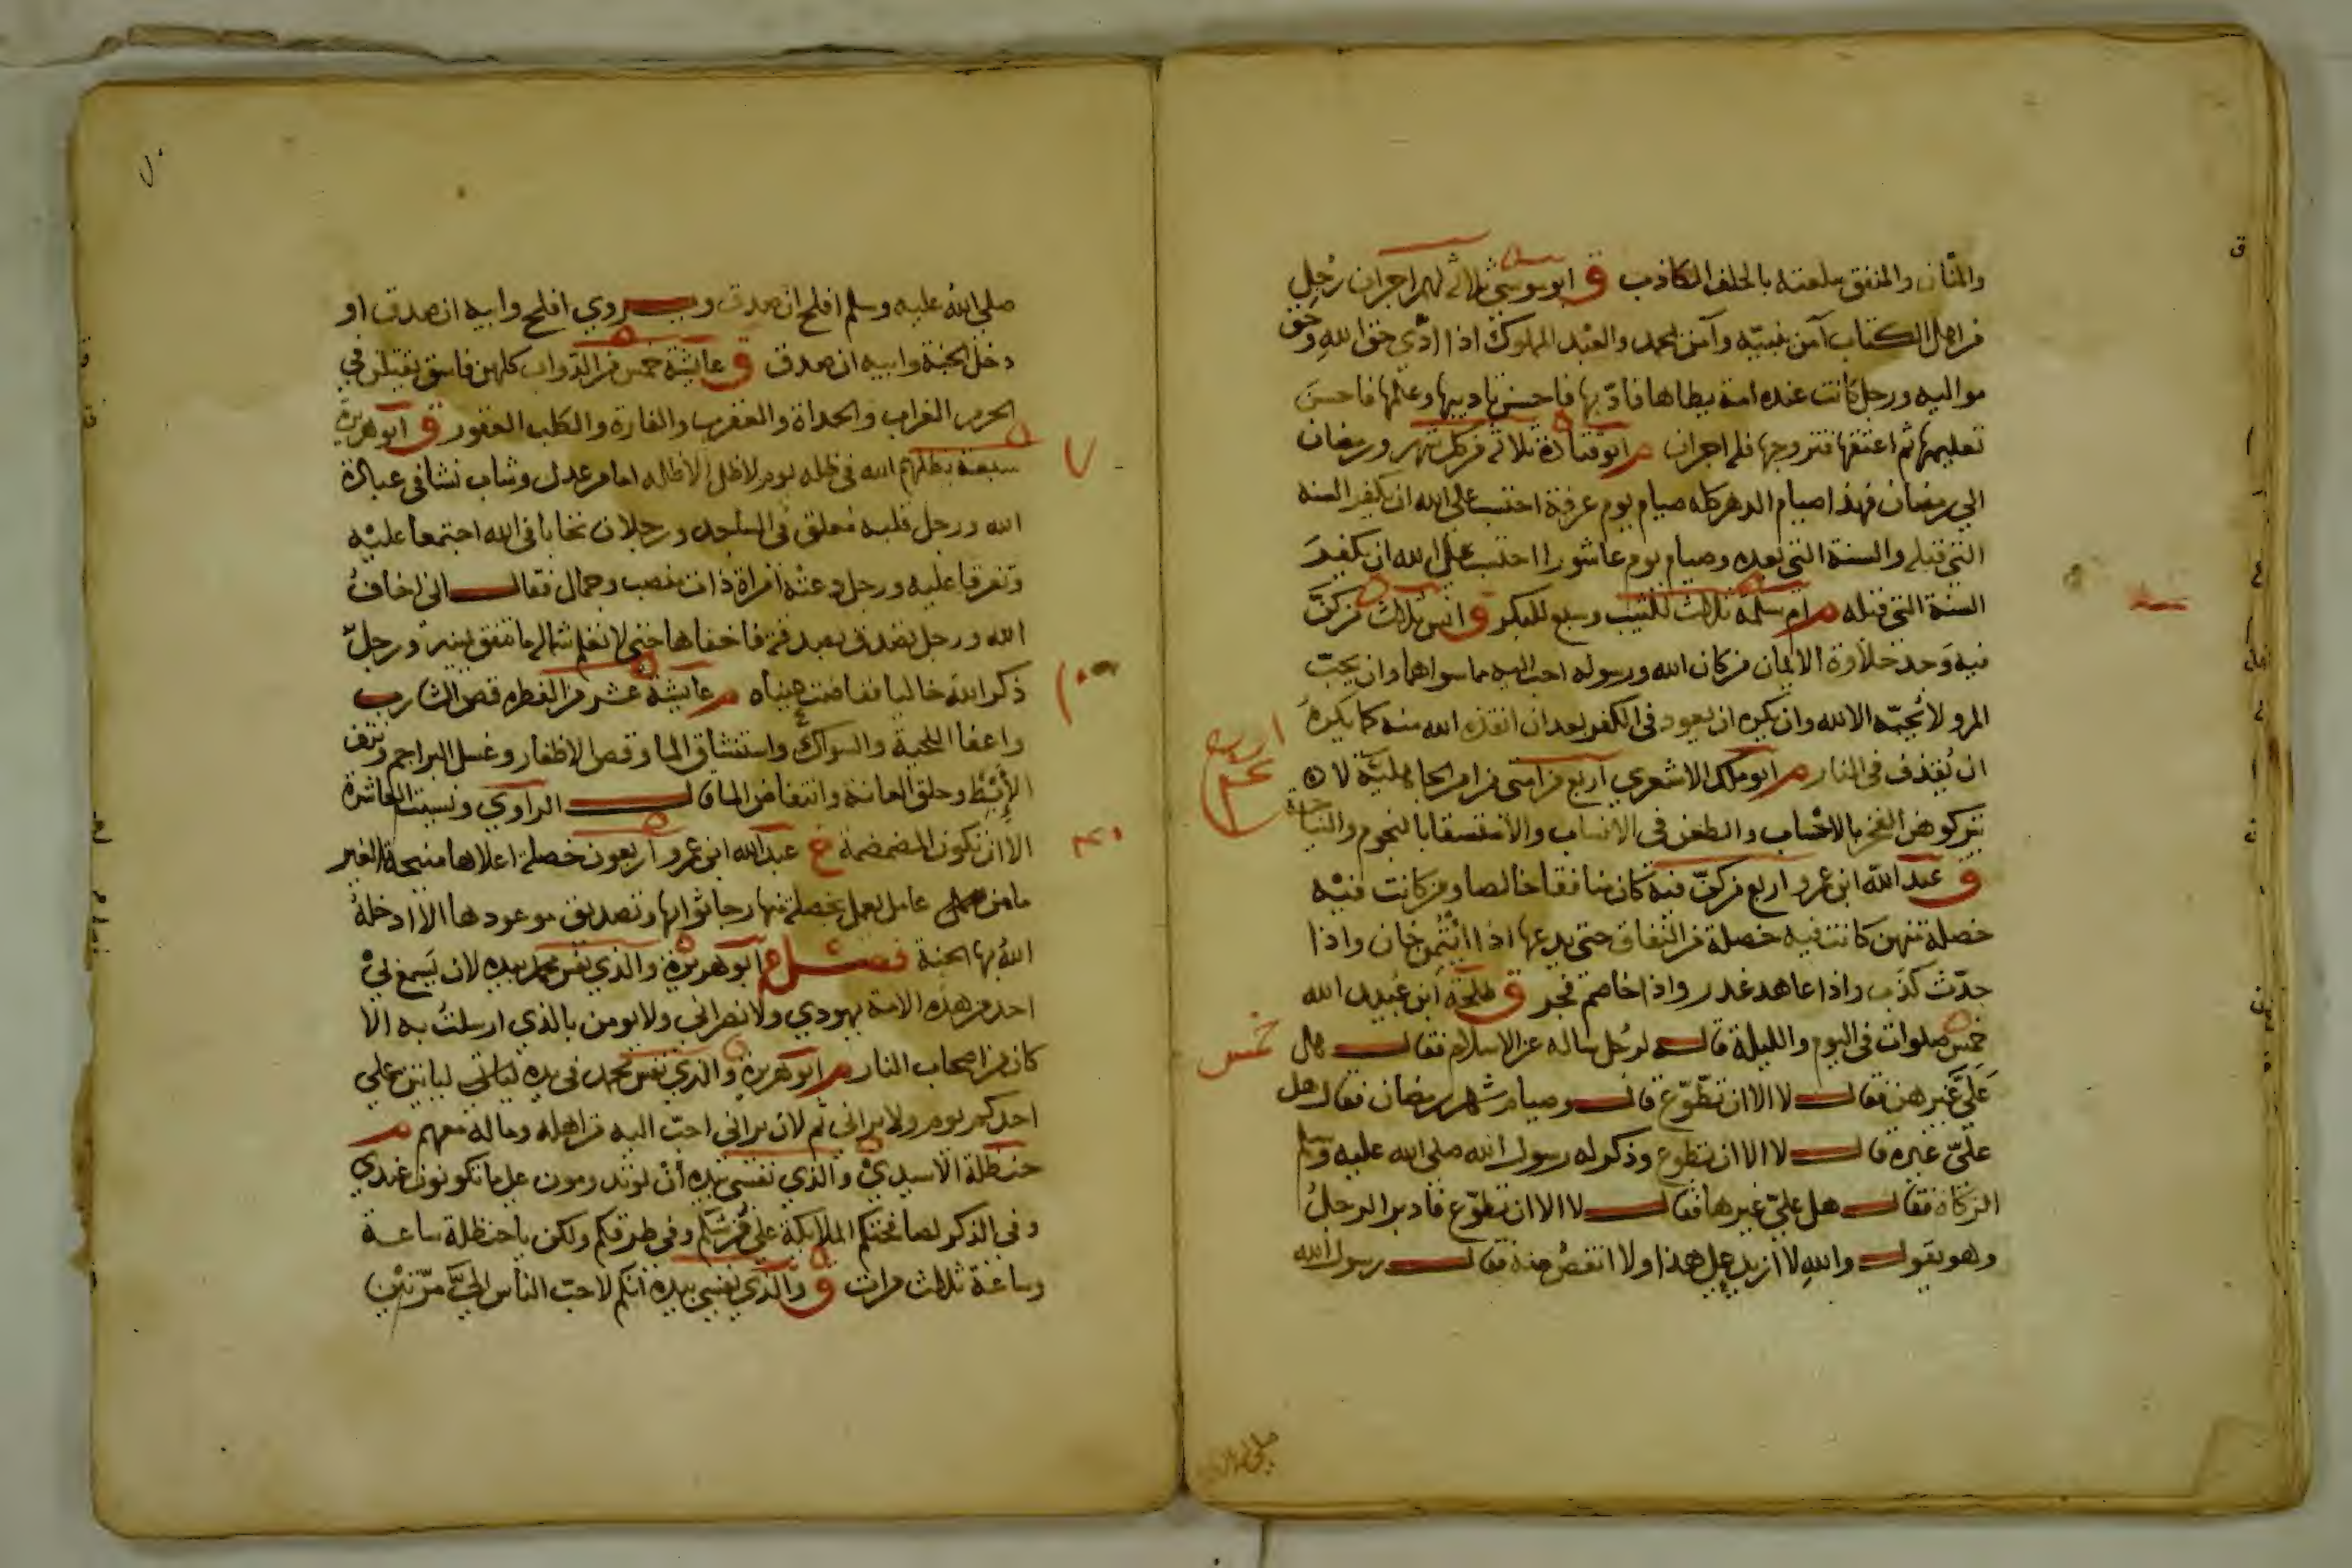 والمنان والمنفق سلعته بالحلف الكاذب ق ابو موسى ثلاثة لهم اجران رجل
من اهل الكتاب آمن بنبيّه وآمن بمحمد والعبد المملوك اذا ادّى حق اللهِ وحق
مواليه ورجل كانت عنده امة يطاها فادّبها فاحسن تاديبها وعلمها فاحسنَ
تعليمها ثم اعتقها فتزوجها فله اجران م ابو قتادة ثلاثة من كل شهر ورمضان
الى رمضان فهذا صيام الدهر كله صيام يوم عرفة احتسب على الله ان يكفر السنة
التي قبله والسنة التي بعده وصيام يوم عاشورا احتسب على الله ان يكفر
السنة التي قبله م ام سلمة ثلاث للثيب وسبع للبكر ق انس ثلاث من كنّ
فيه وَجد حلاوة الايمان من كان الله ورسوله احب اليه مما سواهما وان يحبّ
المرو لا يُحبّه الا لله وان يكره ان يعود في الكفر بعد ان انقذه الله منه كما يكرهُ
ان يُقذف في النار م ابو ملك الاشعري اربع من امتى من امر الجاهليّة لا
يتركوهن الفخر بالاحْساب والطعن في الانساب والاستسقا بالنجوم والنياحة
ق عبد الله ابن عمرو اربع من كنّ فيه كان منافقا خالصا ومن كانت فيْه
خصلة منهن كانت فيه خصلة من النّفاق حتى يدعها اذا ائتُمن خان واذا
حدّث كذَب واذا عاهد غدر واذا خاصم فجر ق طلحة ابن عُبيد الله
خمس صلوات في اليوم والليلة قاله لرجُل ساله عن الاسلام فقال هل
عَلَيَّ غيرهن فقال لا الا ان تطّوّع قال وصيام شهر رمضان فقال هل
علَيّ غيره قال لا الا ان تطوع وذكر له رسول الله صلى الله عليه وسلم
الزكاة فقال هل عليّ غيرها فقال لا الا ان تطّوّع فادبر الرجلُ
وهو يقول واللهِ لا ازيد على هذا ولا انقصُ منه فقال رسول الله
اربع
خمس
صلى الله
صلى الله عليه وسلم افلح ان صدق ويروي افلح وابيه ان صدق او
دخل الجنة وابيه ان صدق ق عايشة خمس من الدّواب كلهن فاسق يقتلن في
الحرم الغراب والحداة والعقرب والفارة والكلب العقور ق ابو هريرة
سبعة يظلهم الله في ظله يوم لا ظل الا ظله امام عدل وشاب نشا في عبادة
الله ورجل قلبه معلق في المساجد ورجلان تحابا في الله اجتمعا عليْه
وتفرقا عليه ورجل دعتْه امراة ذات منصب وجمال فقال انى اخافُ
الله ورجل تصدق بصدقة فاخفاها حتى لا تعلم شماله ما تنفق يمينه ورجلٌ
ذكر اللهَ خاليا ففاضت عيناه م عايشة عشر من الفطره قص الشارب
واعفا اللحية والسواك واستنشاق الما وقص الاظفار وغسل البراجم ونتف
الإبْط وحلق العانة وانتقاص الما قال الراوي ونسيت العاشرة
الا ان تكون المضمضة خ عبد الله ابن عمرو اربعون خصلة اعلاها منيحة العنز
ما من عامل يعمل بخصلة منها رجا ثوابها وتصديق موعودها الا ادخلهُ
اللهُ بها الجنة فصل م ابو هريرة والذي نفس محمد بيده لا يَسمع بيْ
احد من هذه الامة يهودي ولا نصراني ولا يومن بالذي ارسلتُ به الا
كان من اصحاب النار م ابو هريرة والذي نفس محمد في يده لياتين على
احدكم يوم ولا يراني ثم لان يراني احبّ اليه من اهله وماله معهم م
حنظلة الاسيديْ والذي نفسي بيده اَنْ لو تدومون على ما تكونون عندي
وفي الذكر لصافحتكم الملايكة على فُرشكم وفي طرقكم ولكن يا حنظلة ساعة
وساعة ثلاث مرات ق والذي نفسي بيده انكم لاحبّ الناس اليَّ مرّتيْن
٧
١٠
٤٠